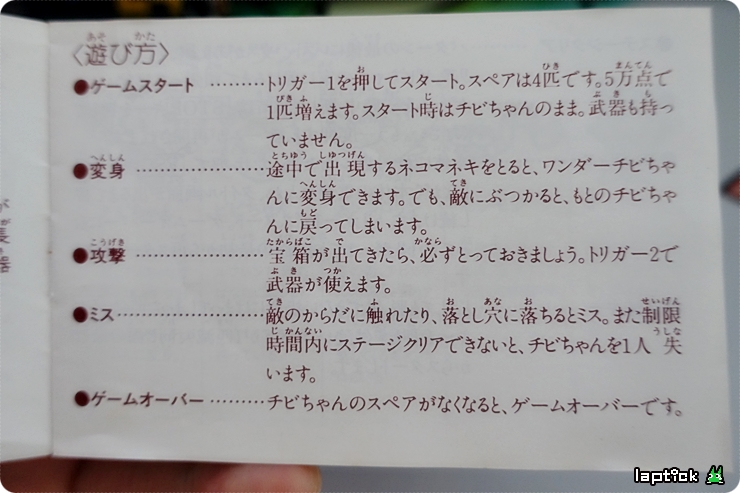 〈遊び方〉
●ゲームスタート ………トリガー1を押してスタート。スペアは4匹です。5万点で
1匹増えます。スタート時はチビちゃんのまま。武器も持っ
ていません。
●変身 ………………途中で出現するネコマネキをとると、ワンダーチビちゃ
んに変身できます。でも、敵にぶつかると、もとのチビちゃ
んに戻ってしまいます。
●攻撃 ………………宝箱が出てきたら、必ずとっておきましょう。トリガー2で
武器が使えます。
●ミス…………………敵のからだに触れたり、落とし穴に落ちるとミス。また制限
時間内にステージクリアできないと、チビちゃんを1人失
います。
●ゲームオーバー ………チビちゃんのスペアがなくなると、ゲームオーバーです。
が
長
器
laptick